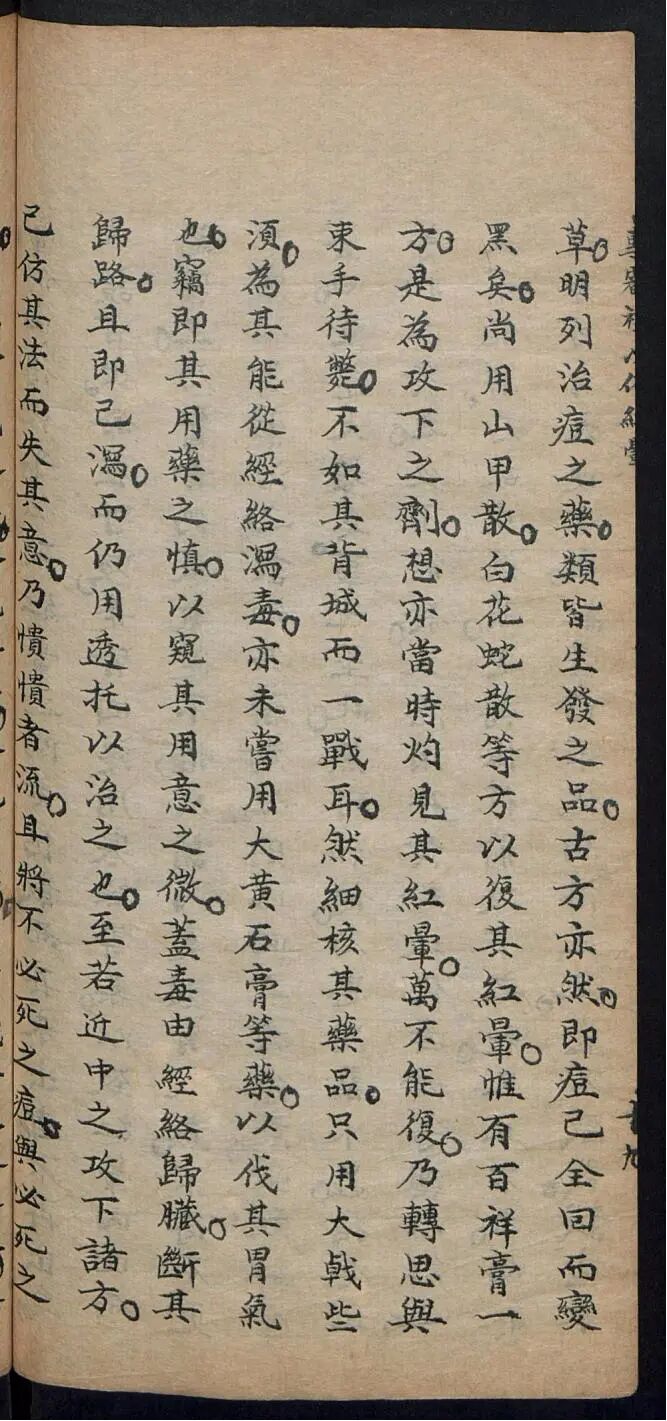 草。明列治痘之藥。類皆生發之品。古方亦然。即痘已全回而變
黑矣。尚用山甲散。白花蛇散等方以復其紅暈。惟有百祥膏一
方。是為攻下之劑。想亦當時灼見其紅暈。萬不能復。乃轉思與
束手待斃。不如其背城而一戰耳。然細核其藥品。只用大戟些
須。為其能從經絡瀉毒。亦未嘗用大黃石膏等藥。以伐其胃氣
也。竊即其用藥之慎。以窺其用意之微。蓋毒由經絡歸臟。斷其
歸路。且即已瀉。而仍用透托以治之也。至若近中之攻下諸方。
己仿其法而失其意。乃憒憒者流。且將不必死之痘。與必死之